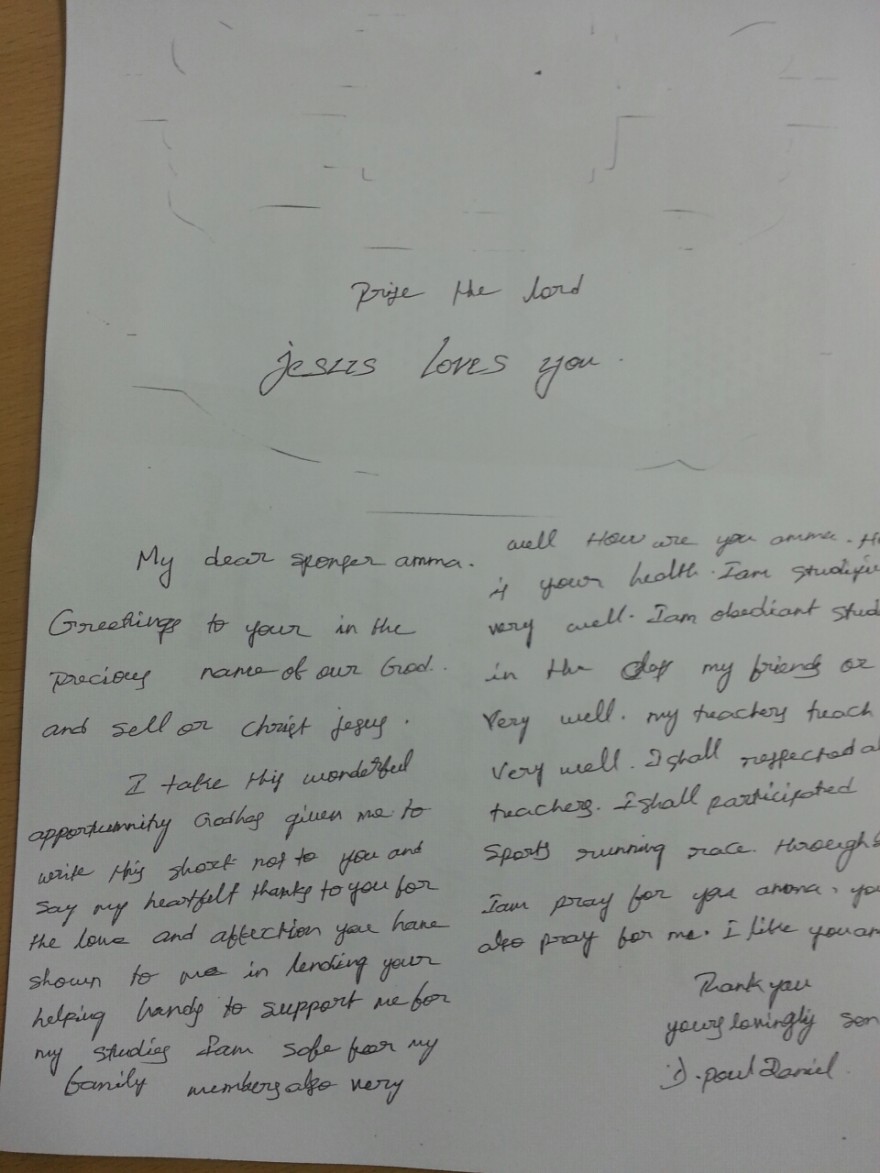 Prise the lord
jesus loves you.
My dear sponser amma.
Greetings to your in the
Precious name of our God.
and sell or Christ jesus.
I take this wonderful
apportumnity Godhas given me to
write this short not to you and
Say my heartfelt thanks to you for
the love and affection you have
shown to me in lending your
helping hands to support me for
my studies Iam safe for my
family members also very
well How are you amma.
is your health. Iam
very well. Iam obediant
in the my friends or
Very well. my teachers teach
Very well. I shall respected
teachers. I shall participated
Sports running race.
Iam pray for you amma,
also pray for me. I like you
Thank you
yours lovingly son
D. Paul Daniel.